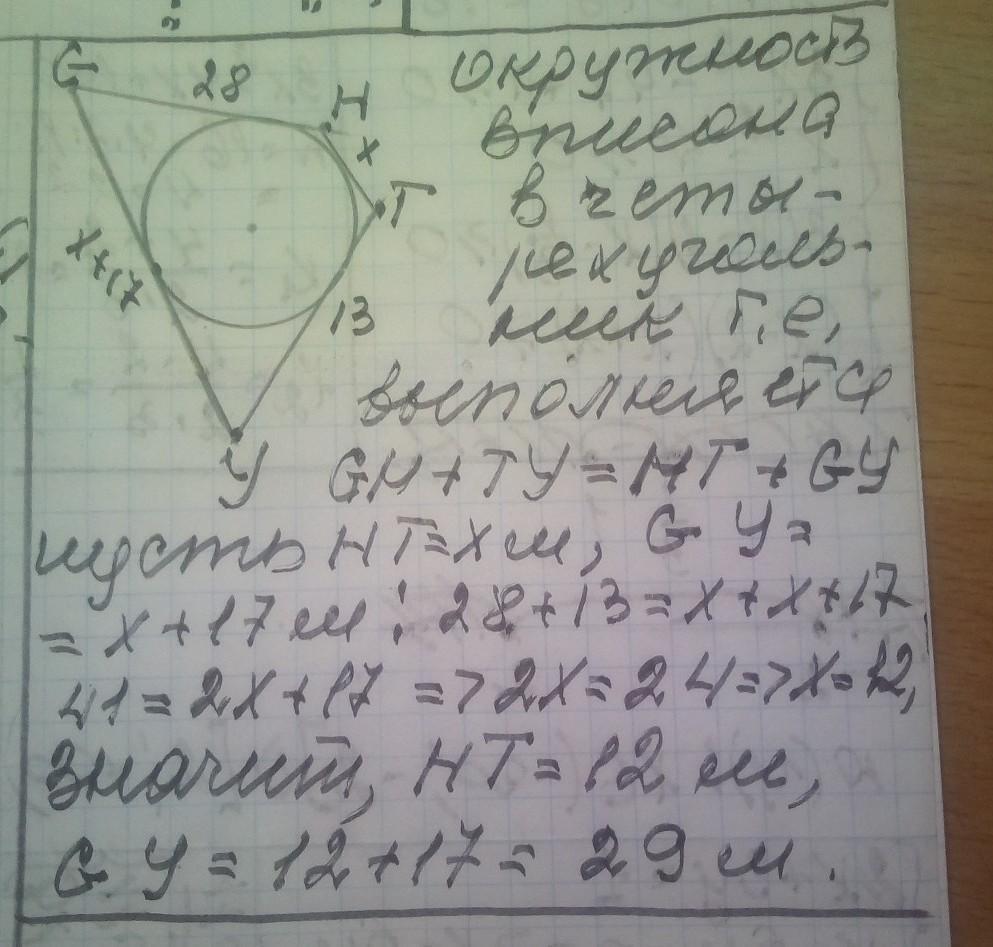 G
28
H
x
T
x+17
13
У
окружность
вписана
в четы-
рехуголь-
ник т.е.
выполняется
GH+TУ=HT+GУ
пусть HT=x м, GУ=
=x+17 м: 28+13=x+x+17
41=2x+17 =>2x=24=>x=12,
значит, HT=12 м,
GУ=12+17=29 м.